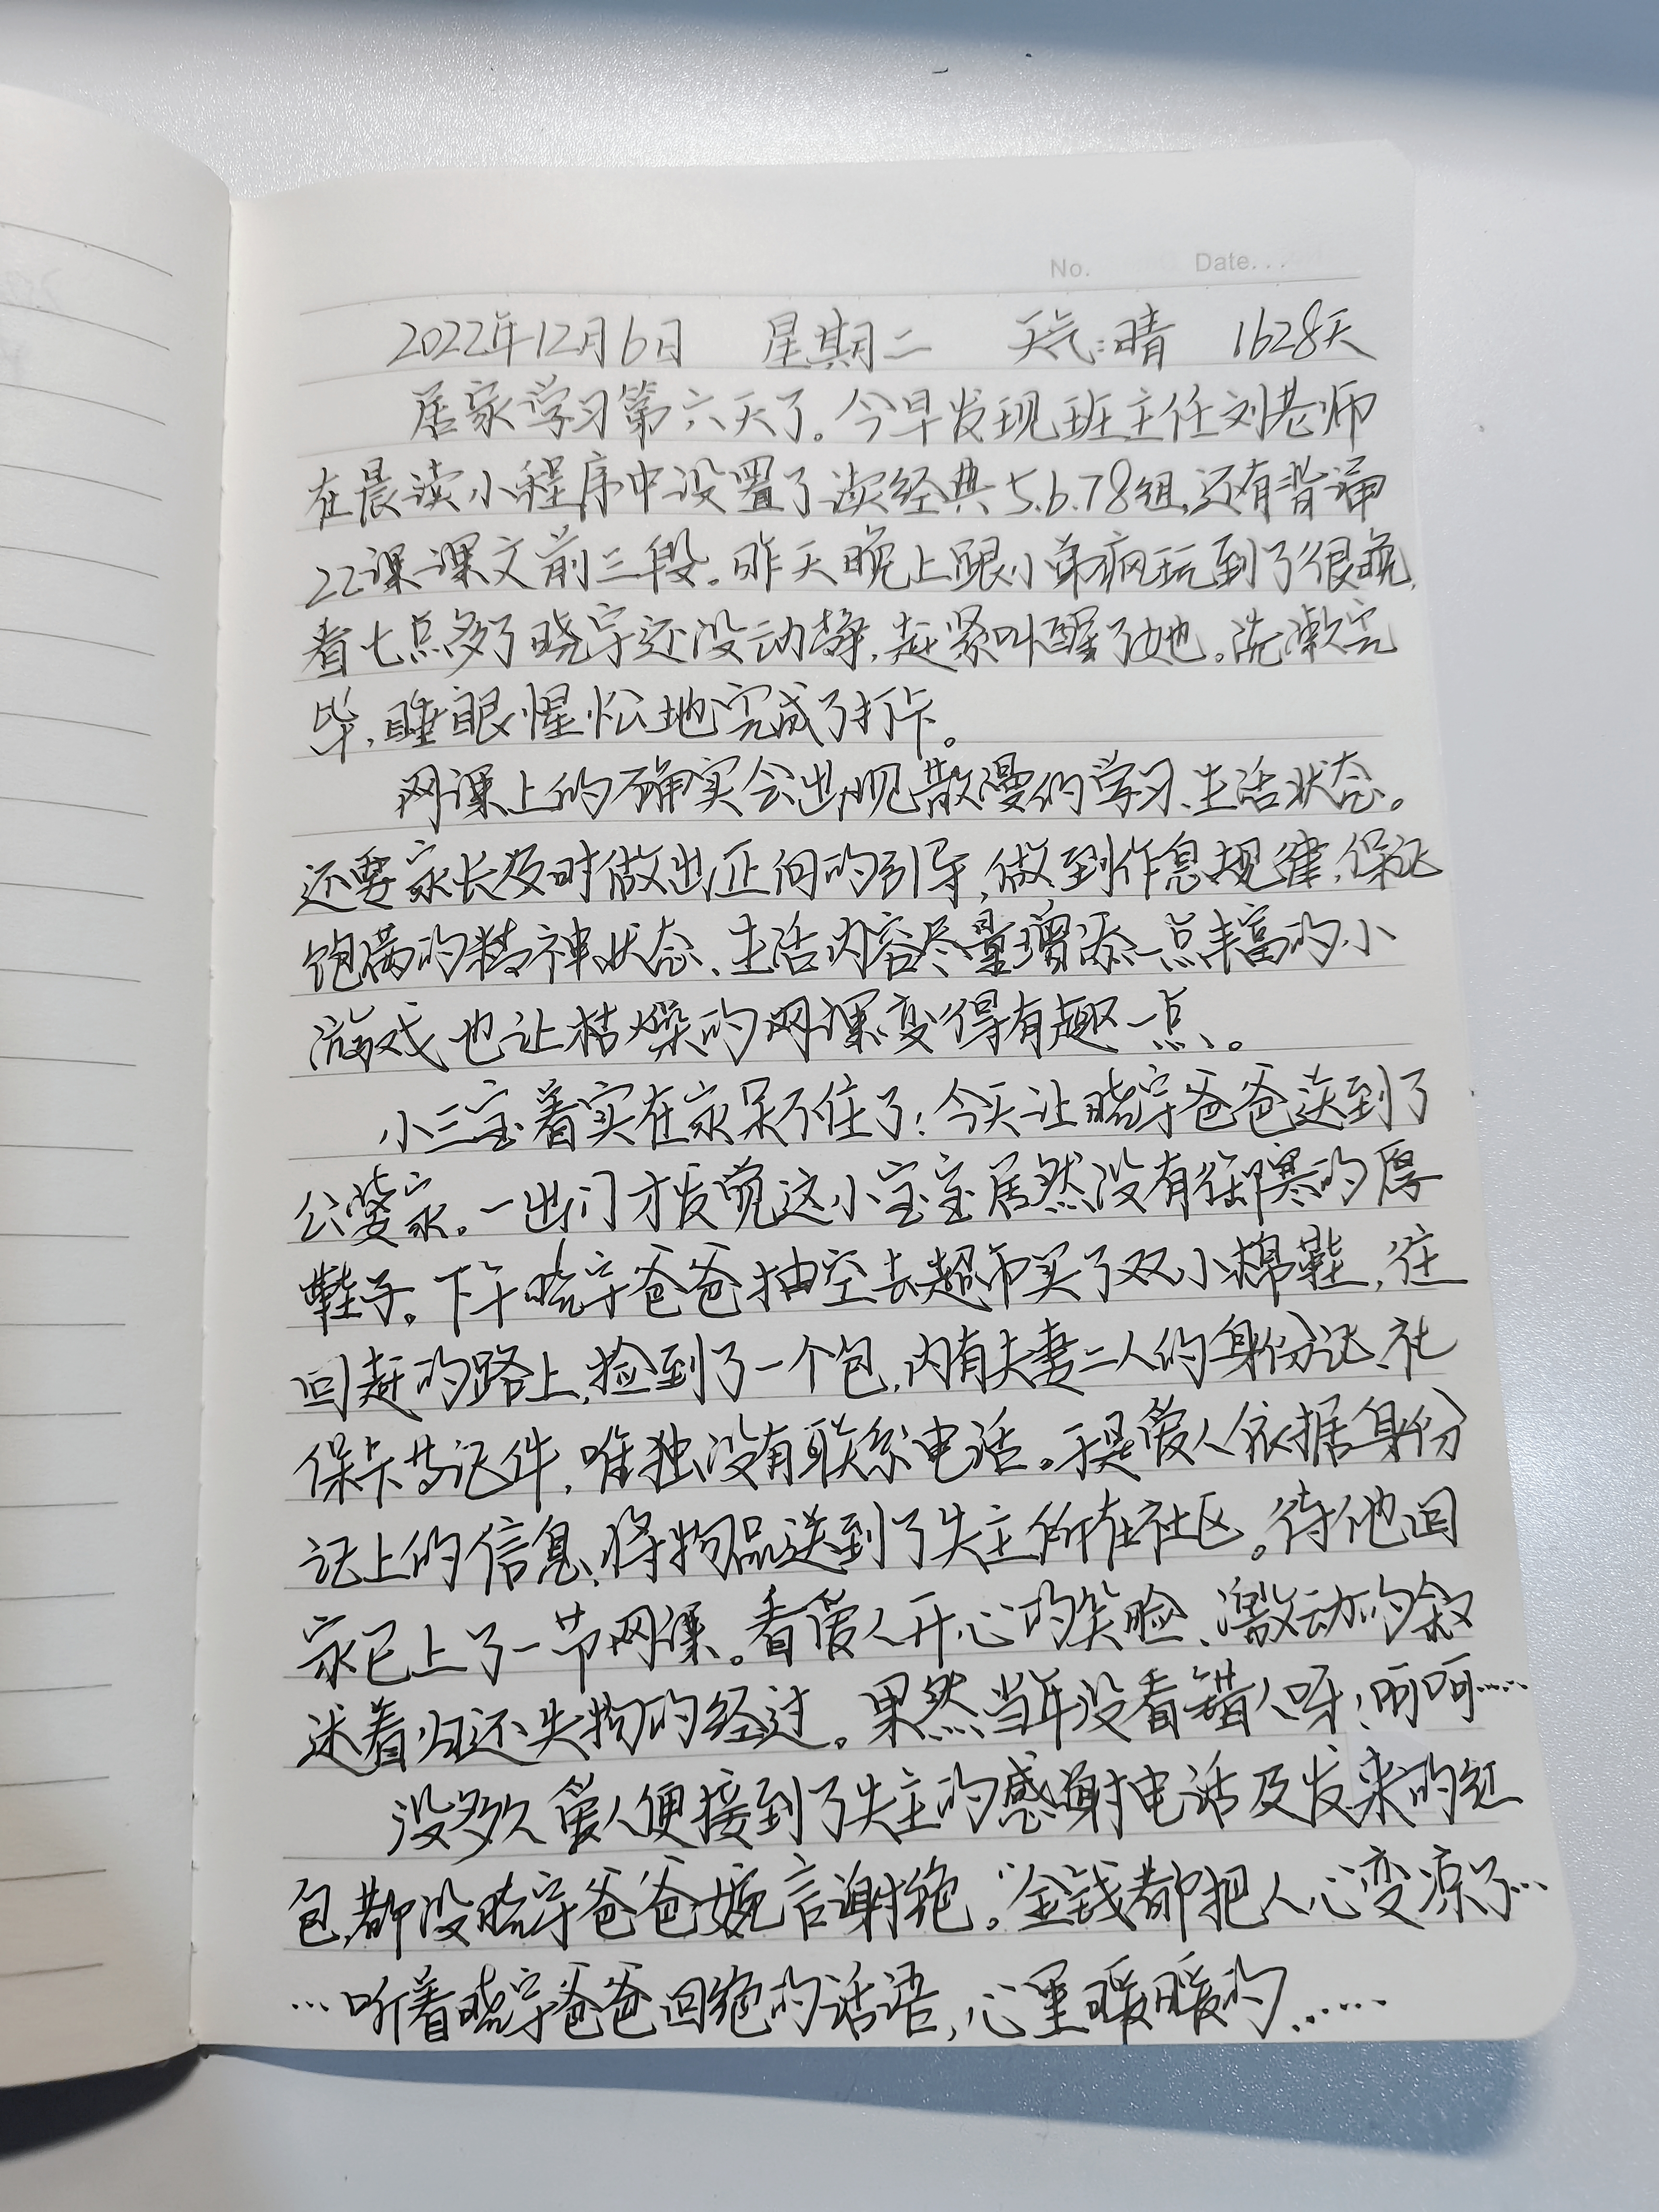 No.          Date...
2022年12月6日 星期二 天气:晴 1628天
居家学习第六天了。今早发现班主任刘老师
在晨读小程序中设置了读经典5.6.78组,还有背诵
22课课文前三段。昨天晚上跟小弟疯玩到了很晚,
看七点多了晓宇还没动静,赶紧叫醒了她。洗漱完
毕,睡眼惺忪地完成了打卡。
网课上的确实会出现散漫的学习、生活状态。
还要家长及时做出正向的引导,做到作息规律,保证
饱满的精神状态、生活内容尽量增添一点丰富的小
游戏也让枯燥的网课变得有趣一点、。
小三宝着实在家呆不住了!今天让晓宇爸爸送到了
公婆家。一出门才发觉这小宝宝居然没有往御寒的厚
鞋子。下午晓宇爸爸抽空去超市买了双小棉鞋,往
回赶的路上,捡到了一个包,内有夫妻二人的身份证、社
保卡等证件,唯独没有联系电话。于是爱人依据身份
证上的信息、将物品送到了失主所在社区。待他回
家已上了一节网课。看爱人开心的笑脸、激动的叙
述着归还失物的经过。果然当年没看错人呀!呵呵……
没多久爱人便接到了失主的感谢电话及发来的红
包,都没晓宇爸爸婉言谢绝。“金钱都把人心变凉了…
…听着晓宇爸爸回绝的话语,心里暖暖的……